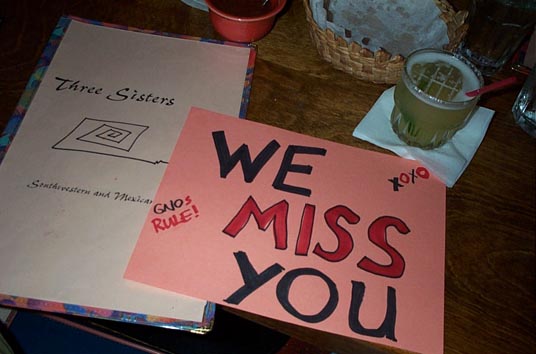 Three Sisters
Southwestern and Mexican
WE
MISS
YOU
XOXO
GNOs
RULE!